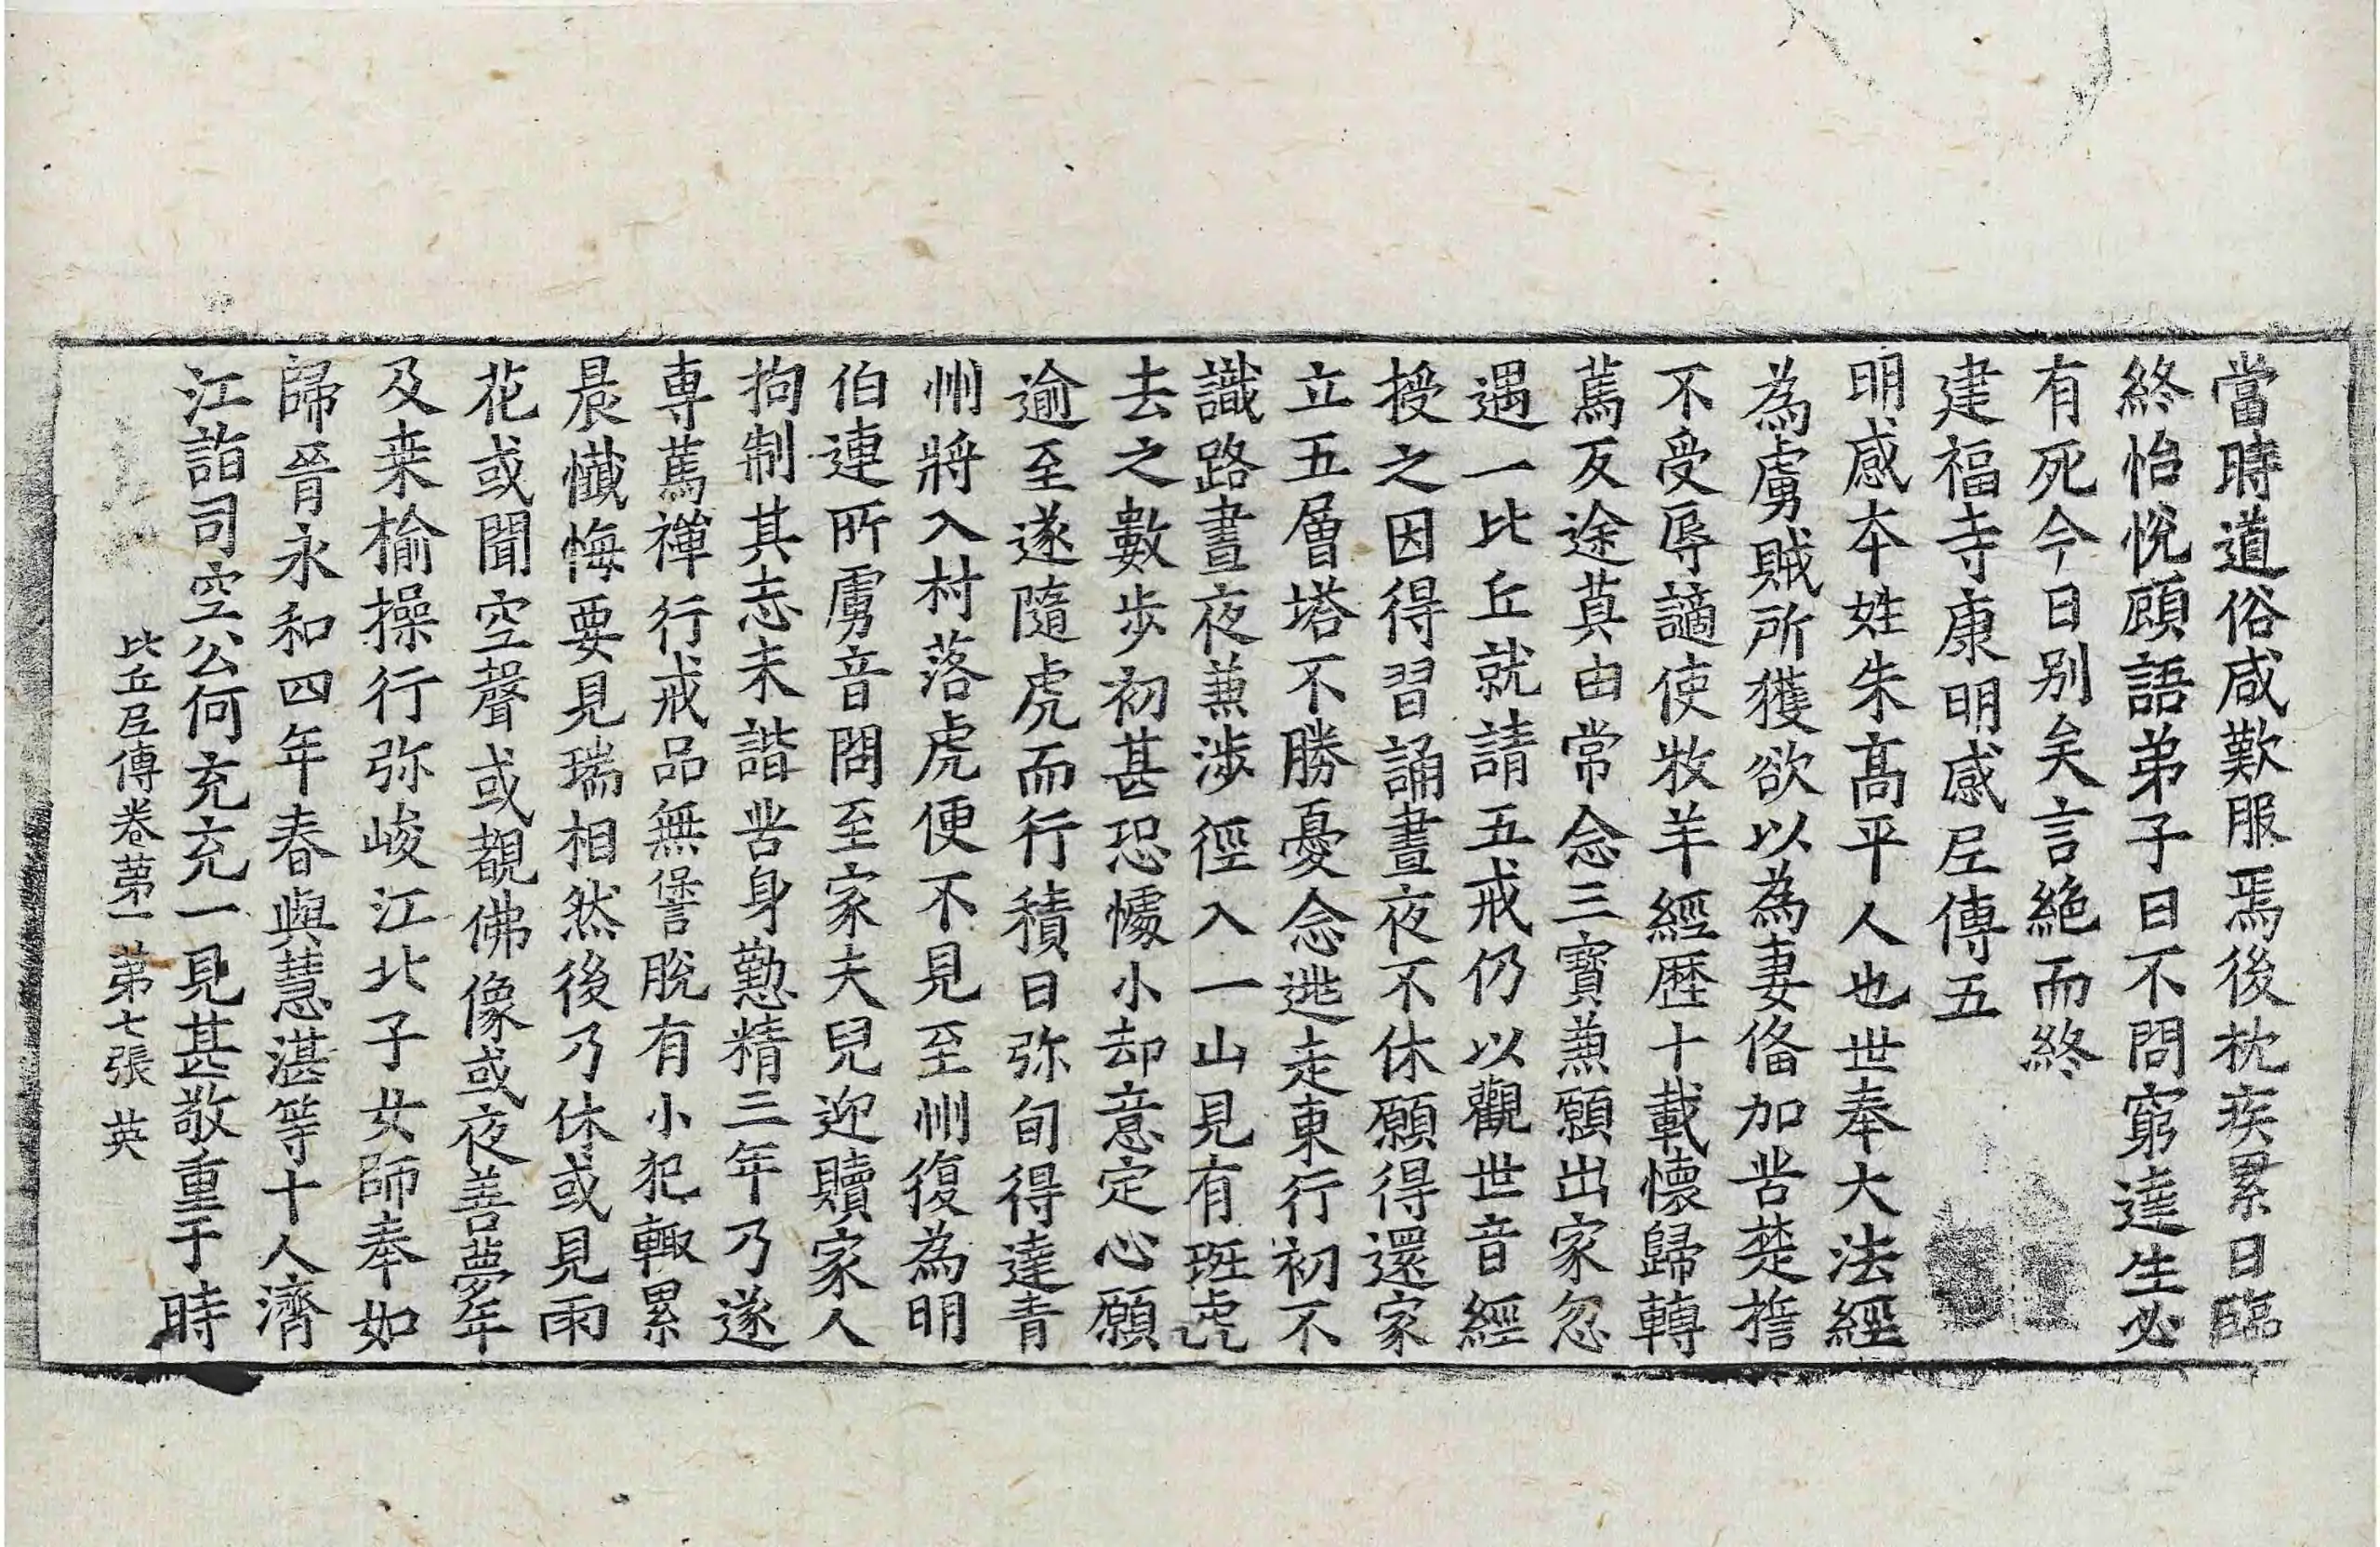 當時道俗咸歎服焉後枕疾累日臨
終怡悅顧語弟子曰不問窮達生必
有死今日别矣言絶而終
建福寺康明感尼傳五
明感本姓朱髙平人也世奉大法經
為虜賊所獲欲以為妻俻加苦楚誓
不受辱謫使牧羊經歷十載懷歸轉
蔿反途莫由常念三寶兼願出家忽
遇一比丘就請五戒仍以觀世音經
授之因得習誦晝夜不休願得還家
立五層塔不勝憂念逃走東行初不
識路晝夜兼渉徑入一山見有斑虎
去之數步初甚恐懅小却意定心願
逾至遂隨虎而行積日弥旬得達青
州將入村落虎便不見至州復為明
伯連所虜音問至家夫兒迎贖家人
拘制其志未諧苦身懃精三年乃遂
専蔿禪行戒品無諐脫有小犯輙累
晨懴悔要見瑞相然後乃休或見雨
花或聞空聲或覩佛像或夜善夢年
及桒榆操行弥峻江北子女師奉如
歸晉永和四年春與慧湛等十人濟
江詣司空公何充充一見甚敬重于時
比丘尼傳卷第一 第七張 英